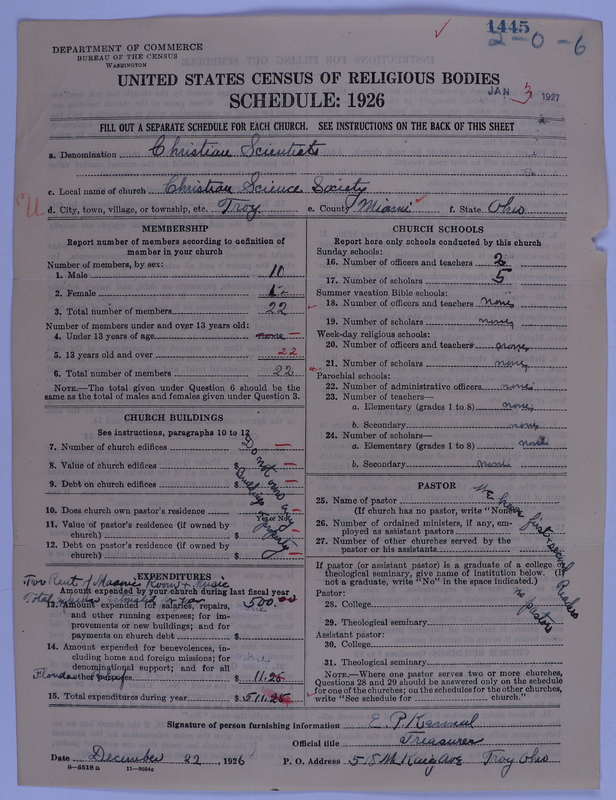 1445
2-0-6
DEPARTMENT OF COMMERCE
BUREAU OF THE CENSUS
WASHINGTON
UNITED STATES CENSUS OF RELIGIOUS BODIES
SCHEDULE: 1926
JAN 3 1927
FILL OUT A SEPARATE SCHEDULE FOR EACH CHURCH. SEE INSTRUCTIONS ON THE BACK OF THIS SHEET
a. Denomination Christian Scientists
c. Local name of church Christian Science Society
d. City, town, village, or township, etc. Troy e. County Miami f. State Ohio
MEMBERSHIP
Report number of members according to definition of
member in your church
Number of members, by sex:
1. Male 10
2. Female 12
3. Total number of members 22
Number of members under and over 13 years old:
4. Under 13 years of age none
5. 13 years old and over 22
6. Total number of members 22
NOTE.—The total given under Question 6 should be
the same as the total of males and females given under Question 3.
CHURCH BUILDINGS
See instructions, paragraphs 10 to 12
7. Number of church edifices
8. Value of church edifices $
9. Debt on church edifices $
Do not own any
Building
property
10. Does church own pastor's residence
Yes or No
11. Value of pastor's residence (if owned by
church) $
12. Debt on pastor's residence (if owned by
church) $
For Rent of Masonic Room & Music
EXPENDITURES
Amount expended by your church during last fiscal year
13. Amount expended for salaries, repairs,
and other running expenses; for im-
provements or new buildings; and for
payments on church debt $
500.00
14. Amount expended for benevolences, in-
cluding home and foreign missions; for
denominational support; and for all
other purposes $ 11.25
Florida
15. Total expenditures during year $ 511.25
CHURCH SCHOOLS
Report here only schools conducted by this church
Sunday schools:
16. Number of officers and teachers 2
17. Number of scholars 5
Summer vacation Bible schools:
18. Number of officers and teachers none
19. Number of scholars none
Week-day religious schools:
20. Number of officers and teachers none
21. Number of scholars none
Parochial schools:
22. Number of administrative officers none
23. Number of teachers—
a. Elementary (grades 1 to 8) none
b. Secondary none
24. Number of scholars—
a. Elementary (grades 1 to 8) none
b. Secondary none
PASTOR
25. Name of pastor
(If church has no pastor, write "None")
26. Number of ordained ministers, if any, em-
ployed as assistant pastors
27. Number of other churches served by the
pastor or his assistants
We have first & second Readers
no pastors
If pastor (or assistant pastor) is a graduate of a college or
theological seminary, give name of institution below. (If
not a graduate, write "No" in the space indicated.)
Pastor:
28. College
29. Theological seminary
Assistant pastor:
30. College
31. Theological seminary
NOTE.—Where one pastor serves two or more churches,
Questions 28 and 29 should be answered only on the schedule
for one of the churches; on the schedules for the other churches,
write "See schedule for church."
Signature of person furnishing information E. P.
Official title Treasurer
Date December 22, 1926 P. O. Address 518 Ave Troy Ohio
8—5518 a 11—9594